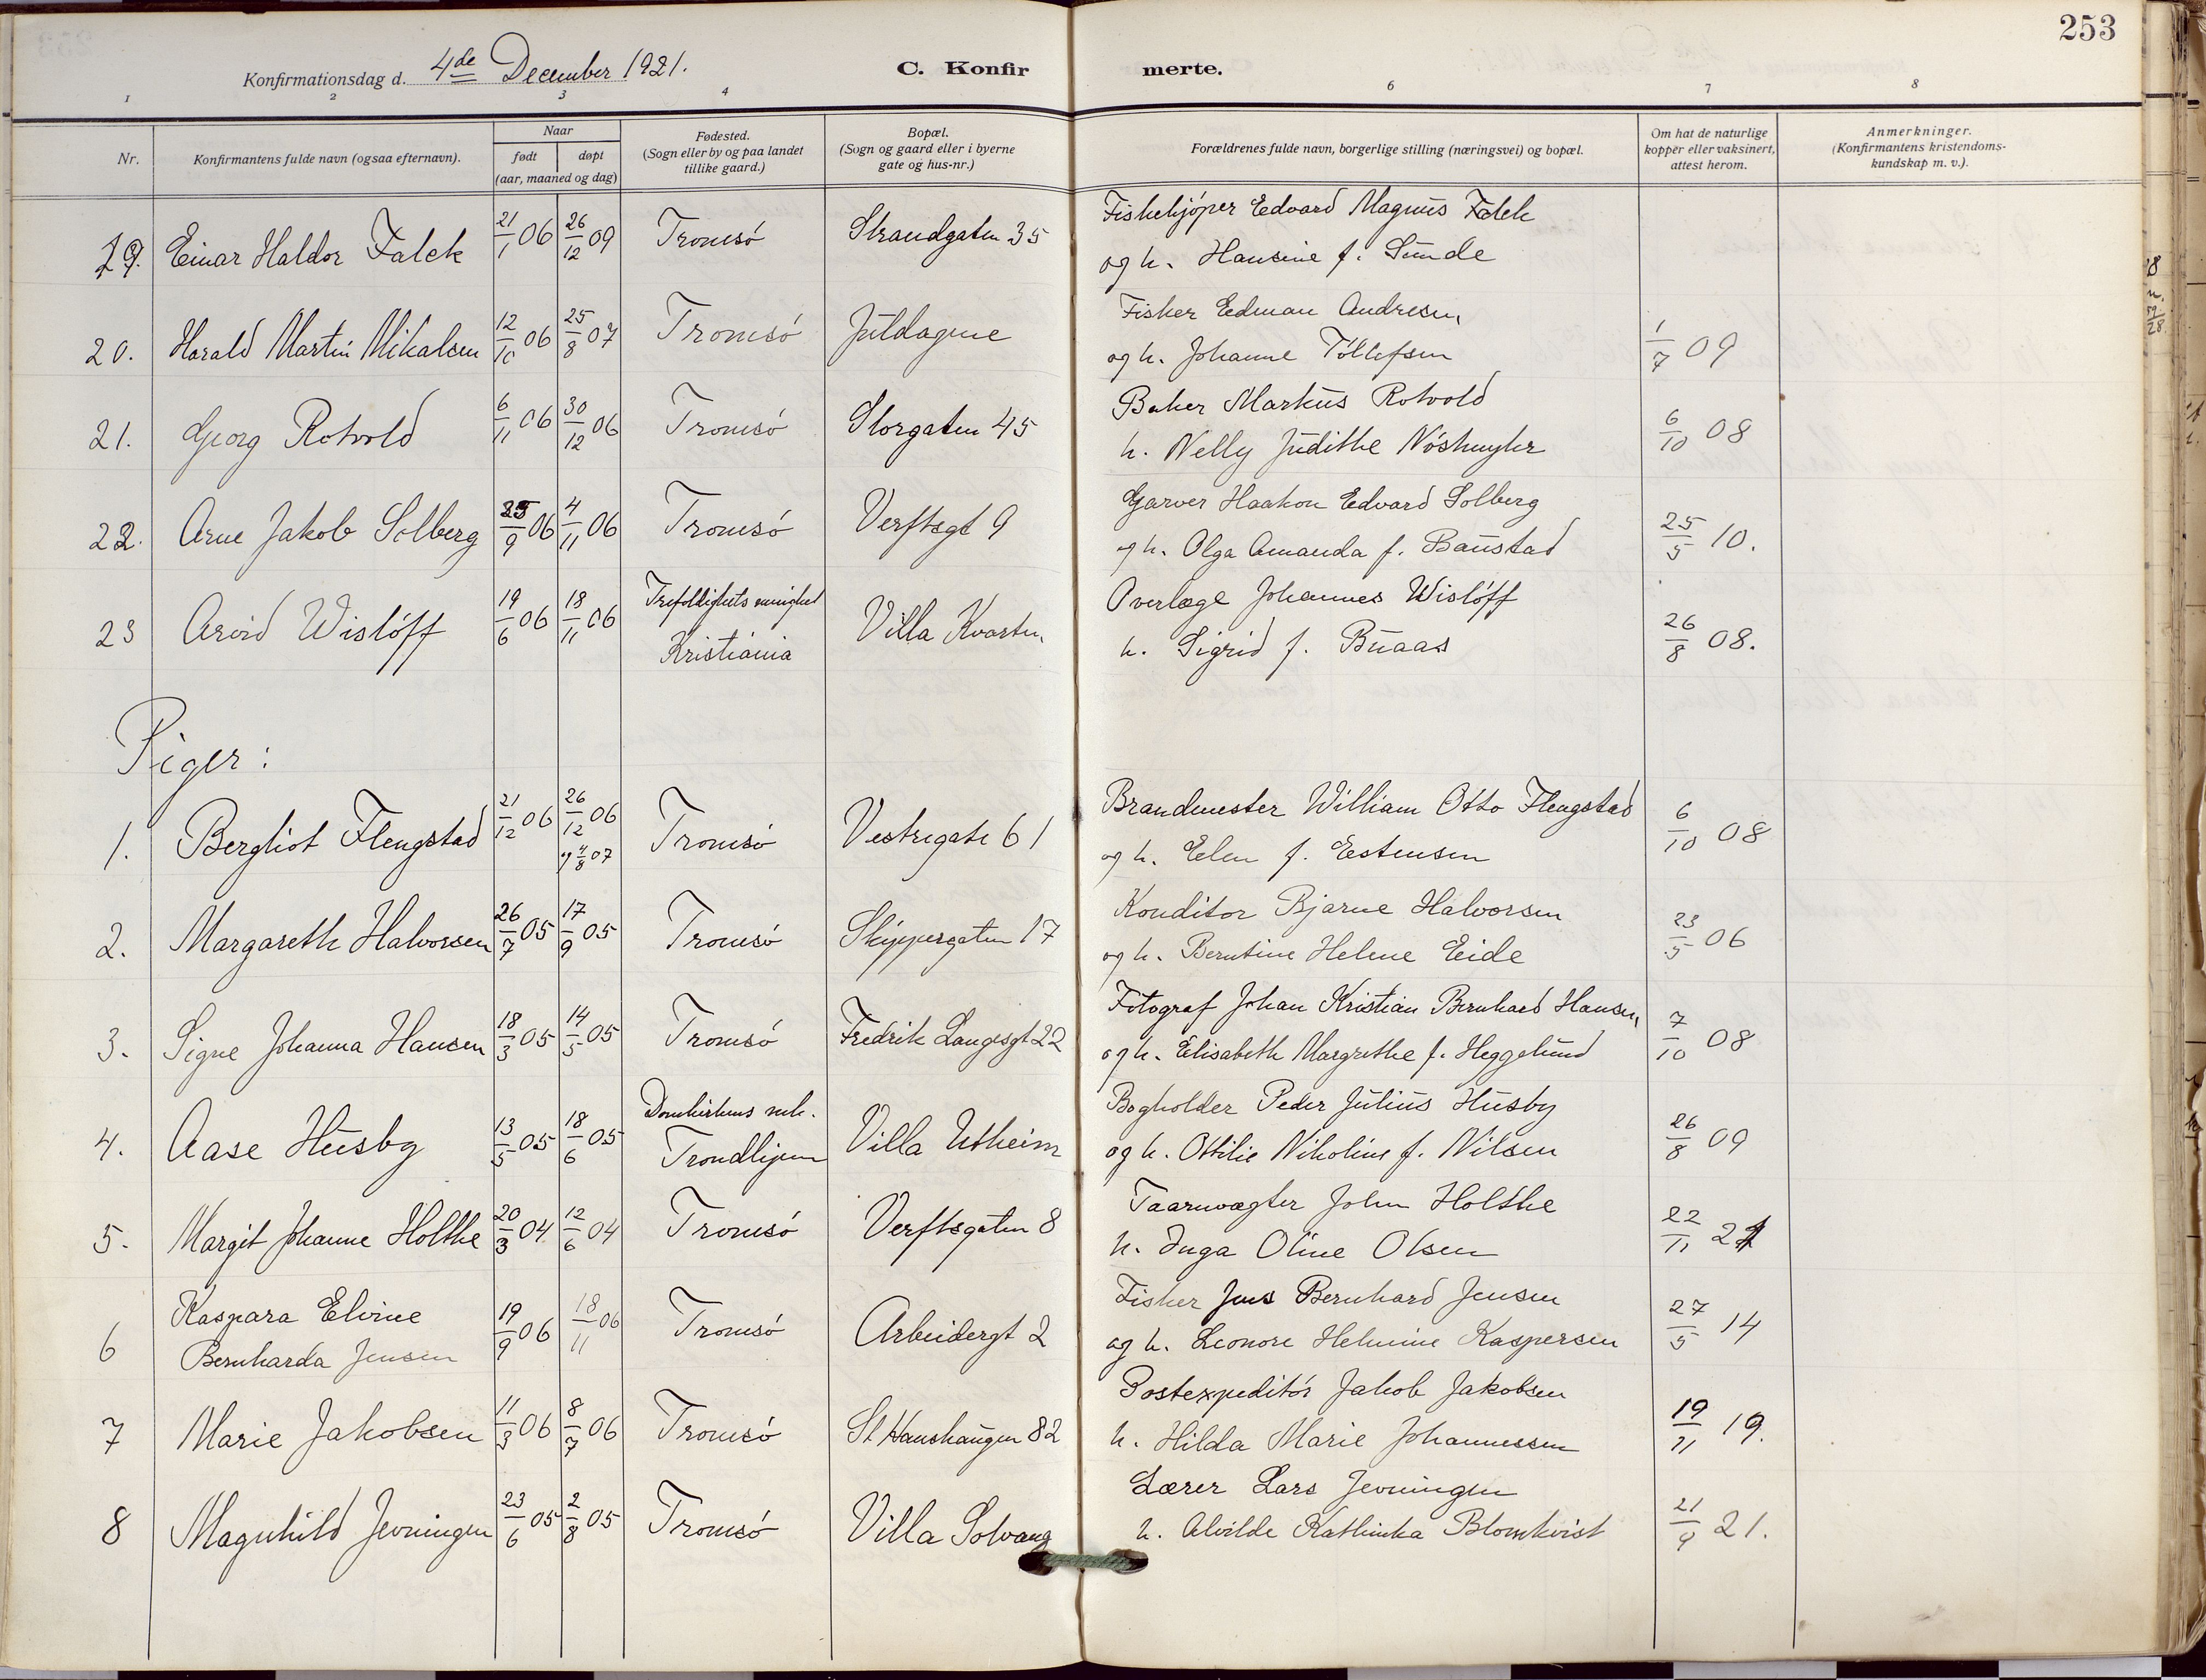 253
Konfirmationsdag d. 4de December 1921. C. Konfirmerte.
1 2 3 4 6 7 8
Nr. Konfirmantens fulde navn (ogsaa efternavn). Naar født døpt (aar, maaned og dag) Fødested. (Sogn eller by og paa landet tillike gaard.) Bopæl. (Sogn og gaard eller i byerne gate og hus-nr.) Forældrenes fulde navn, borgerlige stilling (næringsvei) og bopæl. Om hat de naturlige kopper eller vaksinert, attest herom. Anmerkninger. (Konfirmantens kristendoms-kundskap m. v.).
19. Einar Haldor Falck 21/1 06 26/12 09 Tromsó Strandgaten 35 Fiskekjóper Edvard Magnus Falck
og h. Hansine f. Sunde
20. Harald Martin Mikalsen 12/10 06 25/8 07 Tromsó Juldagene Fisker Edman Andresen,
og h. Johanne Tóllefsen 1/7 09
21. Georg Rotvold 6/11 06 30/12 06 Tromsó Storgaten 45 Baker Markus Rotvold
h. Nelly Judithe 6/10 08
22. Arne Jakob Solberg 25/9 06 4/11 06 Tromsó Verftsgt 9 Garver Haakon Edvard Solberg
og h. Olga Amanda f. Baustad 25/5 10.
23 Arvid Wislóff 19/6 06 18/11 06 Trefoldighets menighet
Kristiania Villa Kvarten Overlæge Johannes Wislóff
h. Sigrid f. Buaas 26/8 08.
Piger:
1. Bergliot Flengstad 21/12 06 26/12 06
og 4/8 07 Tromsó Vestregate 61 Brandmester William Otto Flengstad
og h. Elen f. Estensen 6/10 08
2. Margareth Halvorsen 26/7 05 17/9 05 Tromsó Skippergaten 17 Konditor Bjarne Halvorsen
og h. Berntine Helene Eide 23/5 06
3. Signe Johanna Hansen 18/3 05 14/5 05 Tromsó Fredrik Langesgt 22 Fotograf Johan Kristian Bernhard Hansen,
og h. Elisabeth Margrethe f. Heggelund 7/10 08
4. Aase Husby 13/5 05 18/6 05 Domkirkens mh.
Trondhjem Villa Utheim Bogholder Peder Julius Husby
og h. Ottilie Nikoline f. Nilsen 26/8 09
5. Margit Johanne Holthe 20/3 04 12/6 04 Tromsó Verftsgaten 8 Taarnvægter John Holthe
h. Inga Oline Olsen 22/11 21
6 Kaspara Elvine
Bernharda Jensen 19/9 06 18/11 06 Tromsó Arbeidergt 2 Fisker Jens Bernhard Jensen
og h. Leonore Helmine Kaspersen 27/5 14
7 Marie Jakobsen 11/3 06 8/7 06 Tromsó St Hanshaugen 82 Postexpeditór Jakob Jakobsen
h. Hilda Marie Johannessen 19/11 19.
8 Magnhild Jevningen 23/6 05 2/8 05 Tromsó Villa Solvang Lærer Lars Jevningen
h. Alvilde Kathinka Blomkvist 21/9 21.